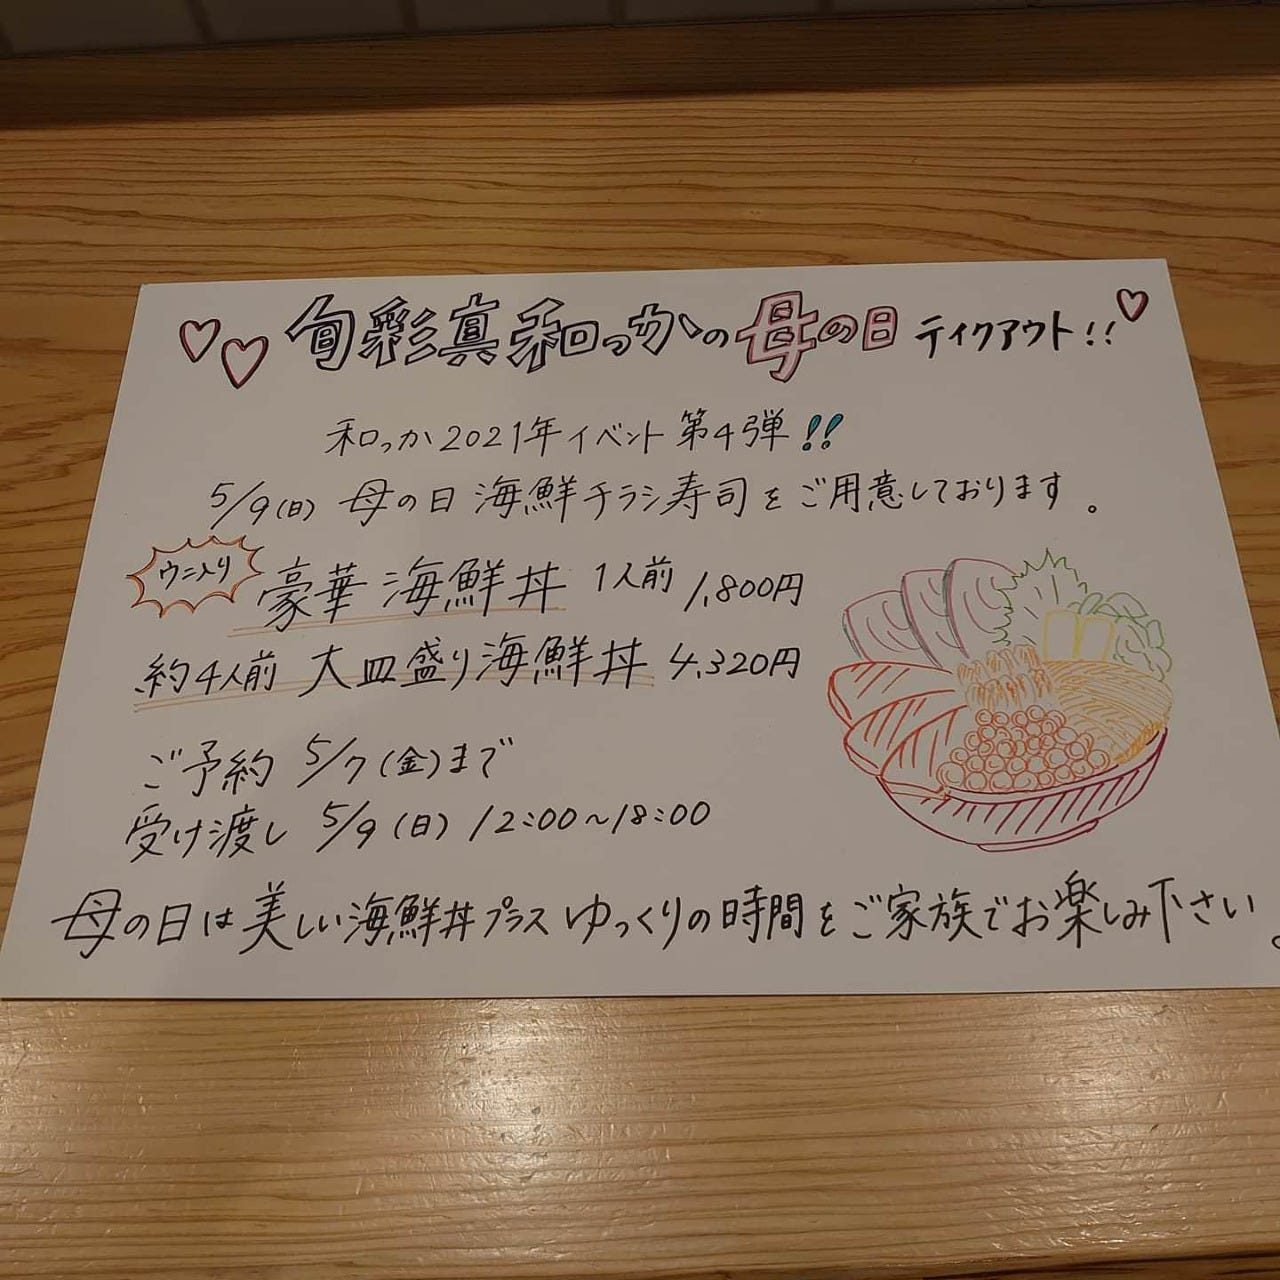 旬彩真和っかの母の日 テイクアウト!!
和っか2021年イベント第4弾!!
5/9(日) 母の日 海鮮チラシ寿司をご用意しております。
ウニ入り 豪華 海鮮丼 1人前 1,800円
約4人前 大皿盛り海鮮丼 4,320円
ご予約 5/7(金)まで
受け渡し 5/9(日) 12:00~18:00
母の日は美しい海鮮丼プラスゆっくりの時間をご家族でお楽しみ下さい。